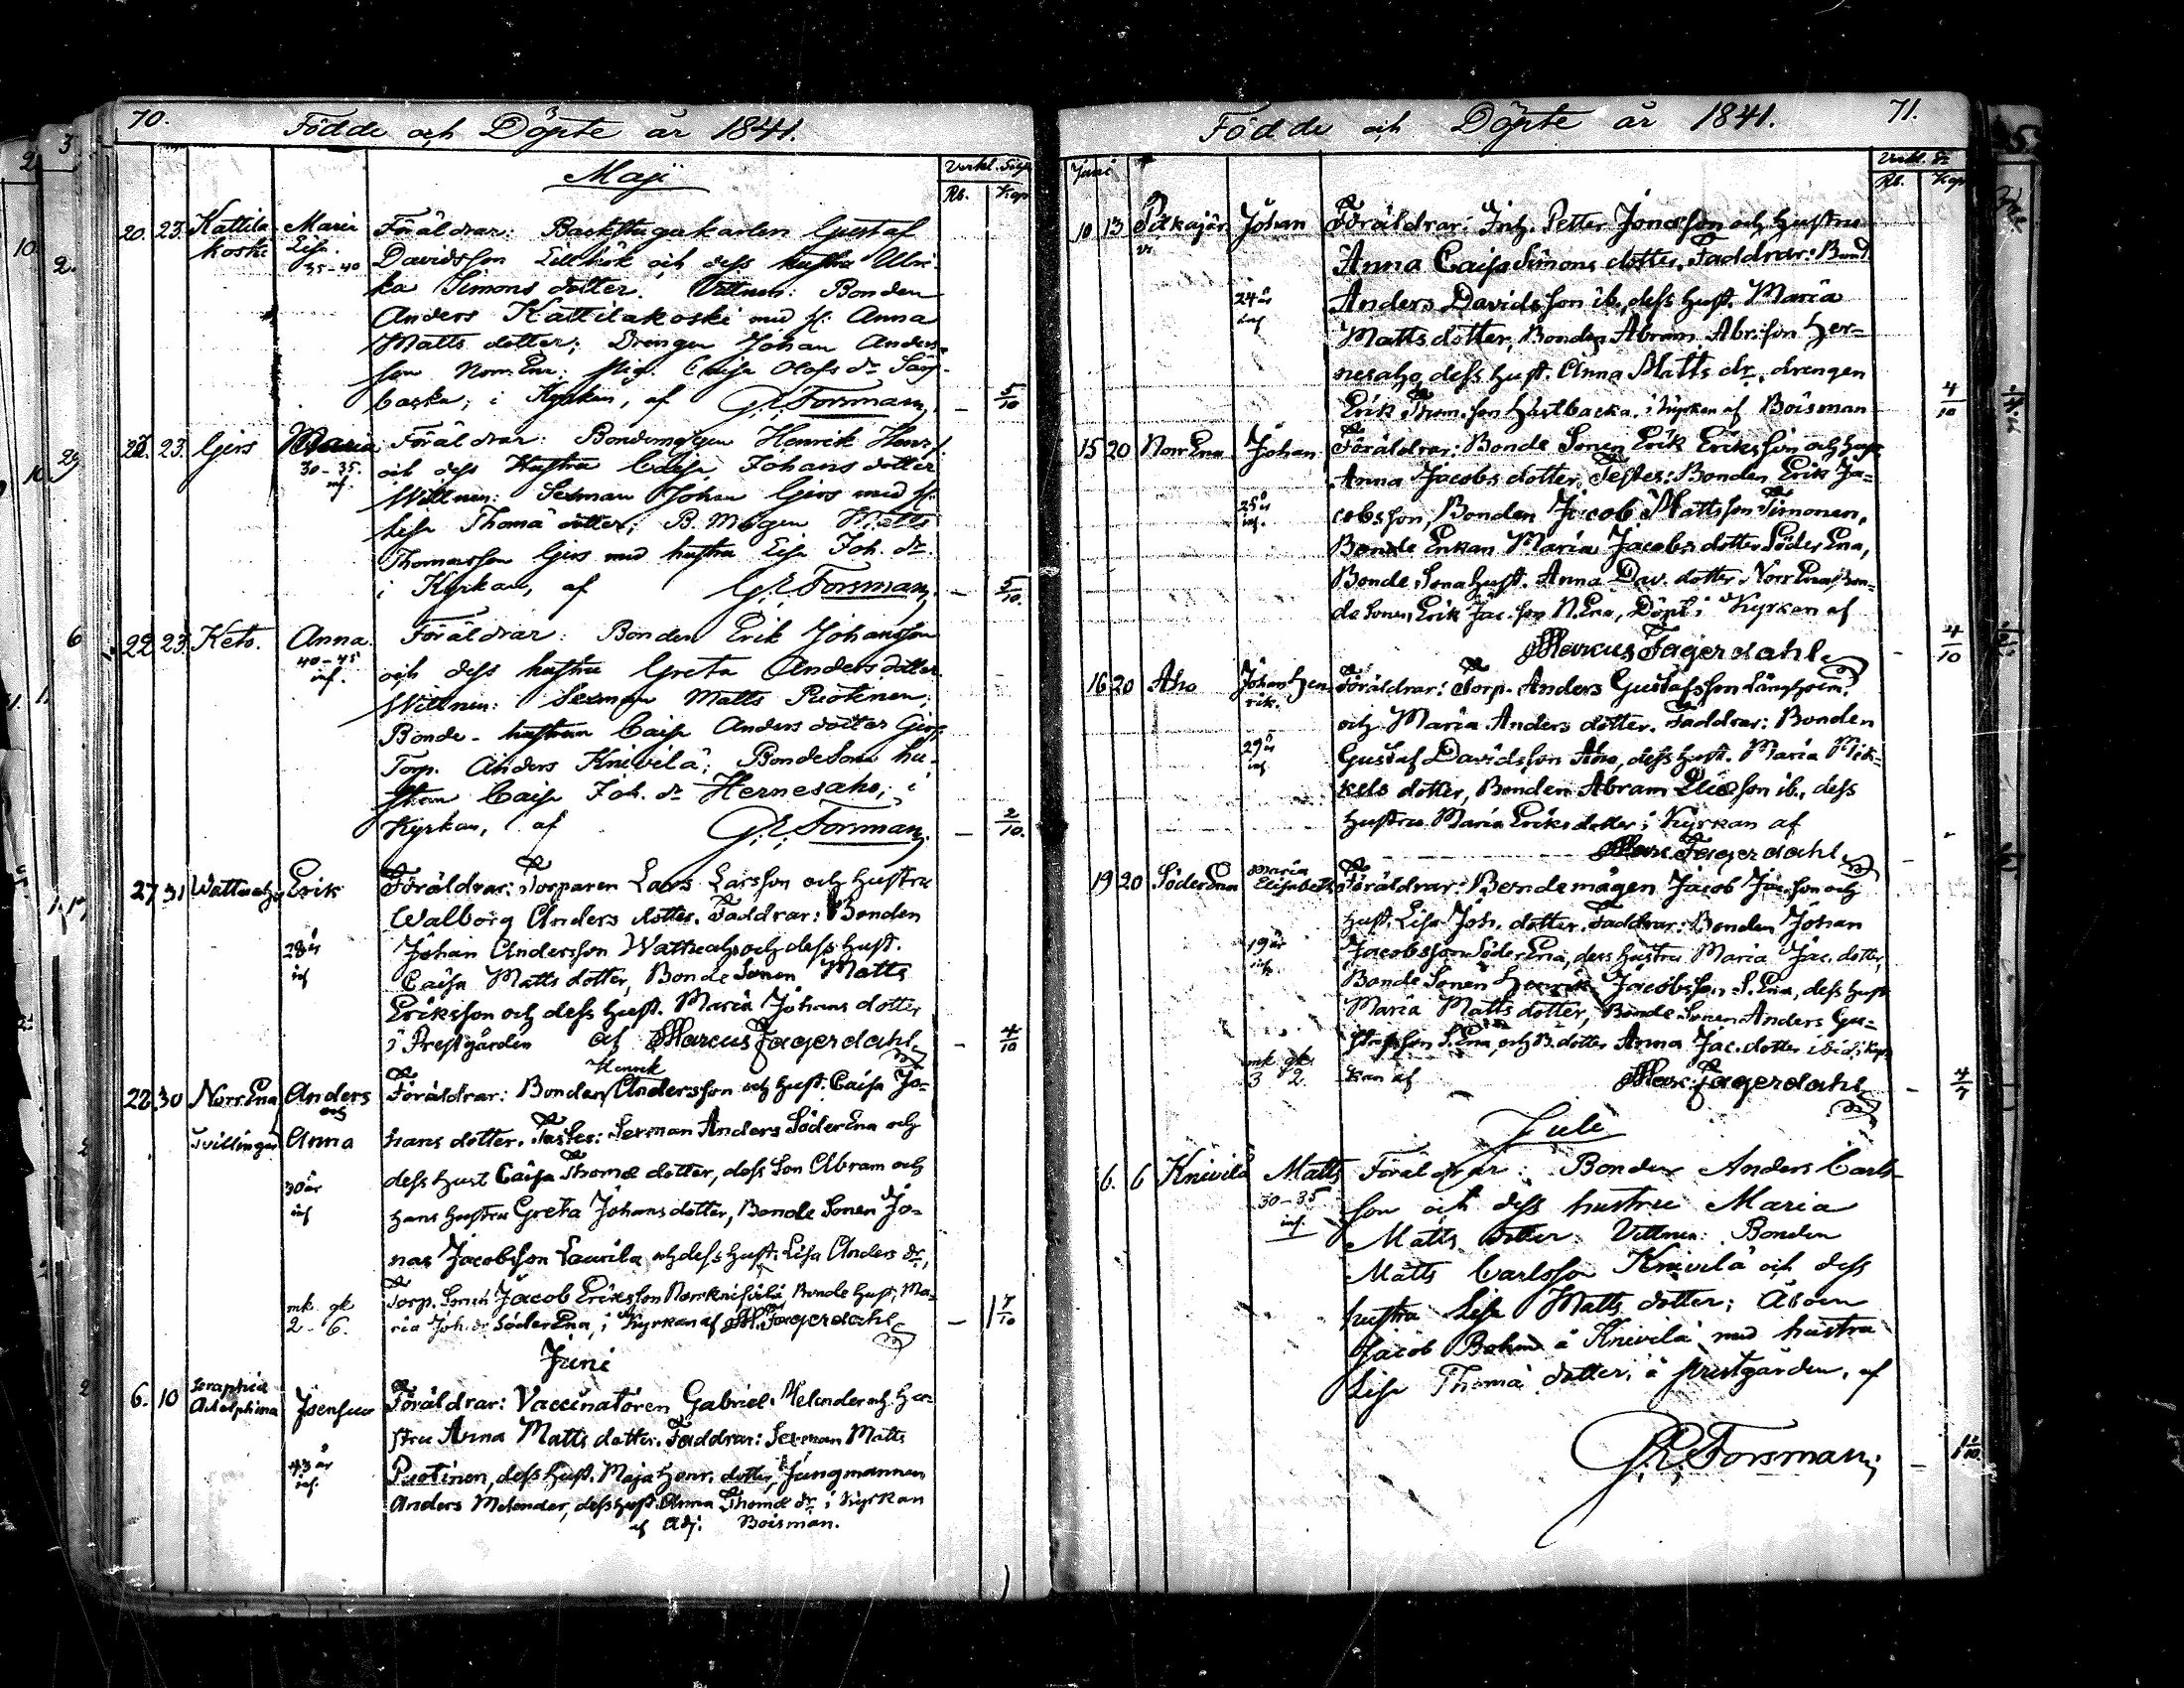 70.
Födde och Döpte år 1841.
Maji
Verkl. Silf
Rb. Kop
20. 23. Kattila Maria Föräldrar: Backstugukarlen Gustaf
koski Lisa Davidsson och dess hustru Ulri-
35-40
ka Simons dotter. Vittnen: Bonden
Anders Kattilakoski med h: Anna
Matts dotter; Drengen Johan Anders-
son Norr Ena; Caisa Olofs dr
backa; i Kyrkan, af G.E. Forsman. — 5/10
22. 23. Girs Maria Föräldrar: Bondemågen Henrik
30-35. och dess Hustru Caisa Johans dotter
inf. Wittnen: Sexman Johan Girs med h:
Lisa Thomæ dotter; B. Mågen Matts
Thomasson Girs med hustru Lisa Joh. dr
i Kyrkan, af G.E. Forsman. — 5/10.
22 23. Keto. Anna. Föräldrar: Bonden Erik Johansson
40-45 och dess hustru Greta Anders dotter.
inf. Wittnen: Sexman Matts Puotinen;
Bonde-hustrun Caisa Anders dotter Girs
Torp. Anders Knivilä; BondeSons hu-
strun Caisa Joh. dr Hernesaho; i
Kyrkan, af G.E. Forsman. — 2/10.
27 31 Erik Föräldrar: Torparen Lars Larsson och Hustru
Walborg Anders dotter. Faddrar: Bonden
28 år Johan Andersson och dess Hust.
inf Caisa Matts dotter, Bonde Sonen Matts
Eriksson och dess Hust. Maria Johans dotter
i Prestgården af Marcus Fagerdahl — 4/10
Henrik
28 30 Norr Ena Anders Föräldrar: Bonden Andersson och Hust. Caisa Jo-
och
Tvillingar Anna hans dotter. Testes: Sexman Anders Söder Ena och
dess Hust Caisa Thomæ dotter, dess Son Abram och
30 år
inf hans Hustru Greta Johans dotter, Bonde Sonen Jo-
nas Jacobsson Laurila och dess Hust. Lisa Anders dr,
Torp. Sonen Jacob Eriksson Bonde Hust. Ma-
mk gk
2 - 6. ria Joh. dr Söder Ena, i Kyrkan af M. Fagerdahl — 1 7/10
Juni
6. 10 Seraphia
Adolphina Föräldrar: Vaccinatören Gabriel Melender och Hu-
stru Anna Matts dotter. Faddrar: Sexman Matts
43 år
inf. Puotinen, dess Hust. Maja Henr. dotter, Jungmannen
Anders Melender, dess Hust. Anna Thomæ dr. i Kyrkan
af Adj. Boisman.
71.
Födde och Döpte år 1841.
Juni
Verkl. Sr
Rb. Kop
10 13 Johan Föräldrar: Petter Jonasson och Hustru
Anna Caisa Simons dotter. Faddrar: Bond
24 år
inf Anders Davidsson ib., dess Hust. Maria
Matts dotter, Bonden Abram Abr.son Her-
nesaho, dess Hust. Anna Matts dr., drengen
Erik Thom.son Hästbacka. i Kyrkan af Boisman 4/10
15 20 Norr Ena Johan Föräldrar: Bonde Sonen Erik Eriksson och Hust
Anna Jacobs dotter, Testes: Bonden Erik Ja-
25 år
inf. cobsson, Bonden Jacob Mattsson Timonen,
Bonde Enkan Maria Jacobs dotter Söder Ena,
Bonde Sona Hust. Anna Dav. dotter Norr Ena, Bon-
de Sonen Erik Jac.son N. Ena, Döpt i Kyrkan af
Marcus Fagerdahl — 4/10
16 20 Aho Johan Hen- Föräldrar: Torp. Anders Gustafsson Långholm
rik. och Maria Anders dotter. Faddrar: Bonden
29 år
inf Gustaf Davidsson Aho, dess Hust. Maria Mik-
kels dotter, Bonden Abram Eliasson ib., dess
Hustru Maria Eriks dotter; i Kyrkan af
Marc. Fagerdahl —
19 20 Söder Ena Maria
Elisabeth Föräldrar: Bondemågen Jacob Jac.son och
Hust. Lisa Joh. dotter. Faddrar: Bonden Johan
19 år
inf Jacobsson Söder Ena, dess hustru Maria Jac. dotter,
Bonde Sonen Henrik Jacobsson S. Ena, dess Hust
Maria Matts dotter, Bonde Sonen Anders Gu-
stafsson S. Ena, och B. dotter Anna Jac. dotter ibid. i Kyr-
mk gk
3 2. kan af Marc. Fagerdahl — 4/7
Juli
6. 6 Knivilä Matts Föräldrar: Bonden Anders Carls-
30-35
inf. son och dess hustru Maria
Matts dotter. Vittnen: Bonden
Matts Carlsson Knivilä och dess
hustru Lisa Matts dotter;
Jacob å Knivilä med hustru
Lisa Thomæ dotter; å prestgården, af
G.E. Forsman;